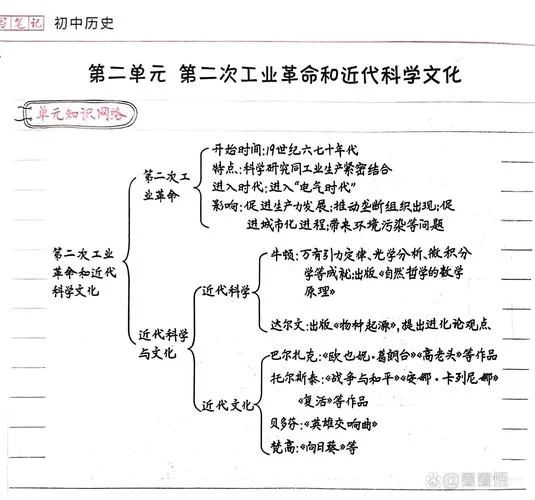 写笔记 初中历史
第二单元 第二次工业革命和近代科学文化
单元知识网络
第二次工业革命和近代科学文化
第二次工业革命
开始时间:19世纪六七十年代
特点:科学研究同工业生产紧密结合
进入时代:进入“电气时代”
影响:促进生产力发展;推动垄断组织出现;促
进城市化进程;带来环境污染等问题
近代科学与文化
近代科学
牛顿:万有引力定律、光学分析、微积分
学等成就;出版《自然哲学的数学
原理》
达尔文:出版《物种起源》,提出进化论观点
近代文化
巴尔扎克:《欧也妮·葛朗台》《高老头》等作品
托尔斯泰:《战争与和平》《安娜·卡列尼娜》
《复活》等作品
贝多芬:《英雄交响曲》
梵高:《向日葵》等